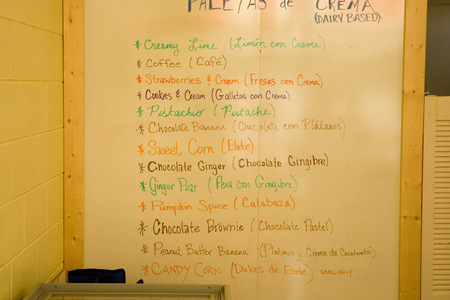 PALETAS de CREMA
(DAIRY BASED)
* Creamy Lime (Limón con Creme)
* Coffee (Café)
* Strawberries & Cream (Fresas con Crema)
* Cookies & Cream (Galletas con Crema)
* Pistachio (Pistache)
* Chocolate Banana (Chocolate con Plátanos)
* Sweet Corn (Elote)
* Chocolate Ginger (Chocolate Gingibre)
* Ginger Pear (Pera con Gingibre)
* Pumpkin Spice (Calabaza)
* Chocolate Brownie (Chocolate Pastel)
* Peanut Butter Banana (Platanos y Crema de Cacahuate)
* CANDY CORN (Dulces de Elote)